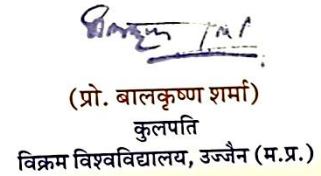 (प्रो. बालकृष्ण शर्मा)
कुलपति
विक्रम विश्वविद्यालय, उज्जैन (म.प्र.)